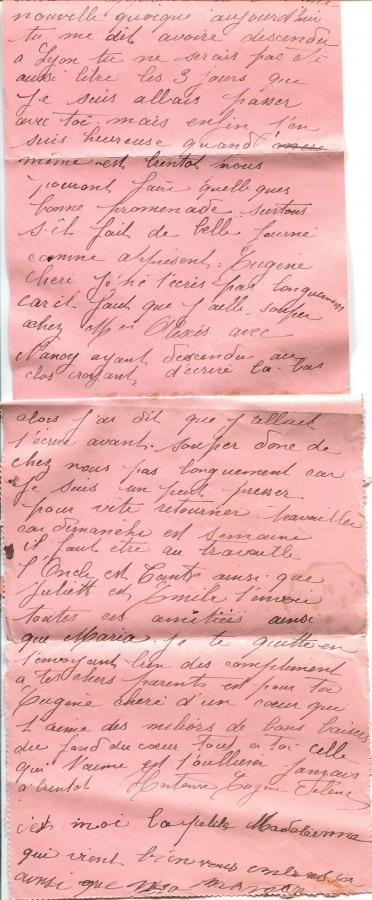 nouvelle quoique aujourd'hui
tu me dit avoire descendu
a Lyon tu ne serais pas été
aussi libre les 3 jours que
je suis allais passer
avec toi mais enfin j'en
suis heureuse quand
même est bientot nous
pouront faire quelleques
bonne promenade surtous
s'il fait de belle journé
comme appresent. Eugène
cheri je ne t'ecris pas longuement
car il faut que j'aille souper
achez Alexis avec
Nancy ayant descendu au
clos croyant d'écrire la-bas
alors j'ai dit que j'allait
t'écrire avant souper donc de
chez nous pas longuement car
je suis un peut presser
pour vite retourner travailler
car dimanche est semaine
il faut être au travaille
l'Oncle est Tante ainsi que
Juliette est Emile t'envoie
toutes ces amitiés ainsi
que Maria. Je te quitte en
t'envoyant bien des compliment
a tes chers parents est pour toi
Eugène cheri d'un cœur que
t'aime des miliers de bons baisers
du fond du cœur tout a toi celle
qui t'aime est t'oullierai jamais
a bientot
c'est moi la petite Madeleinna
qui vient bien vous
ainsi que